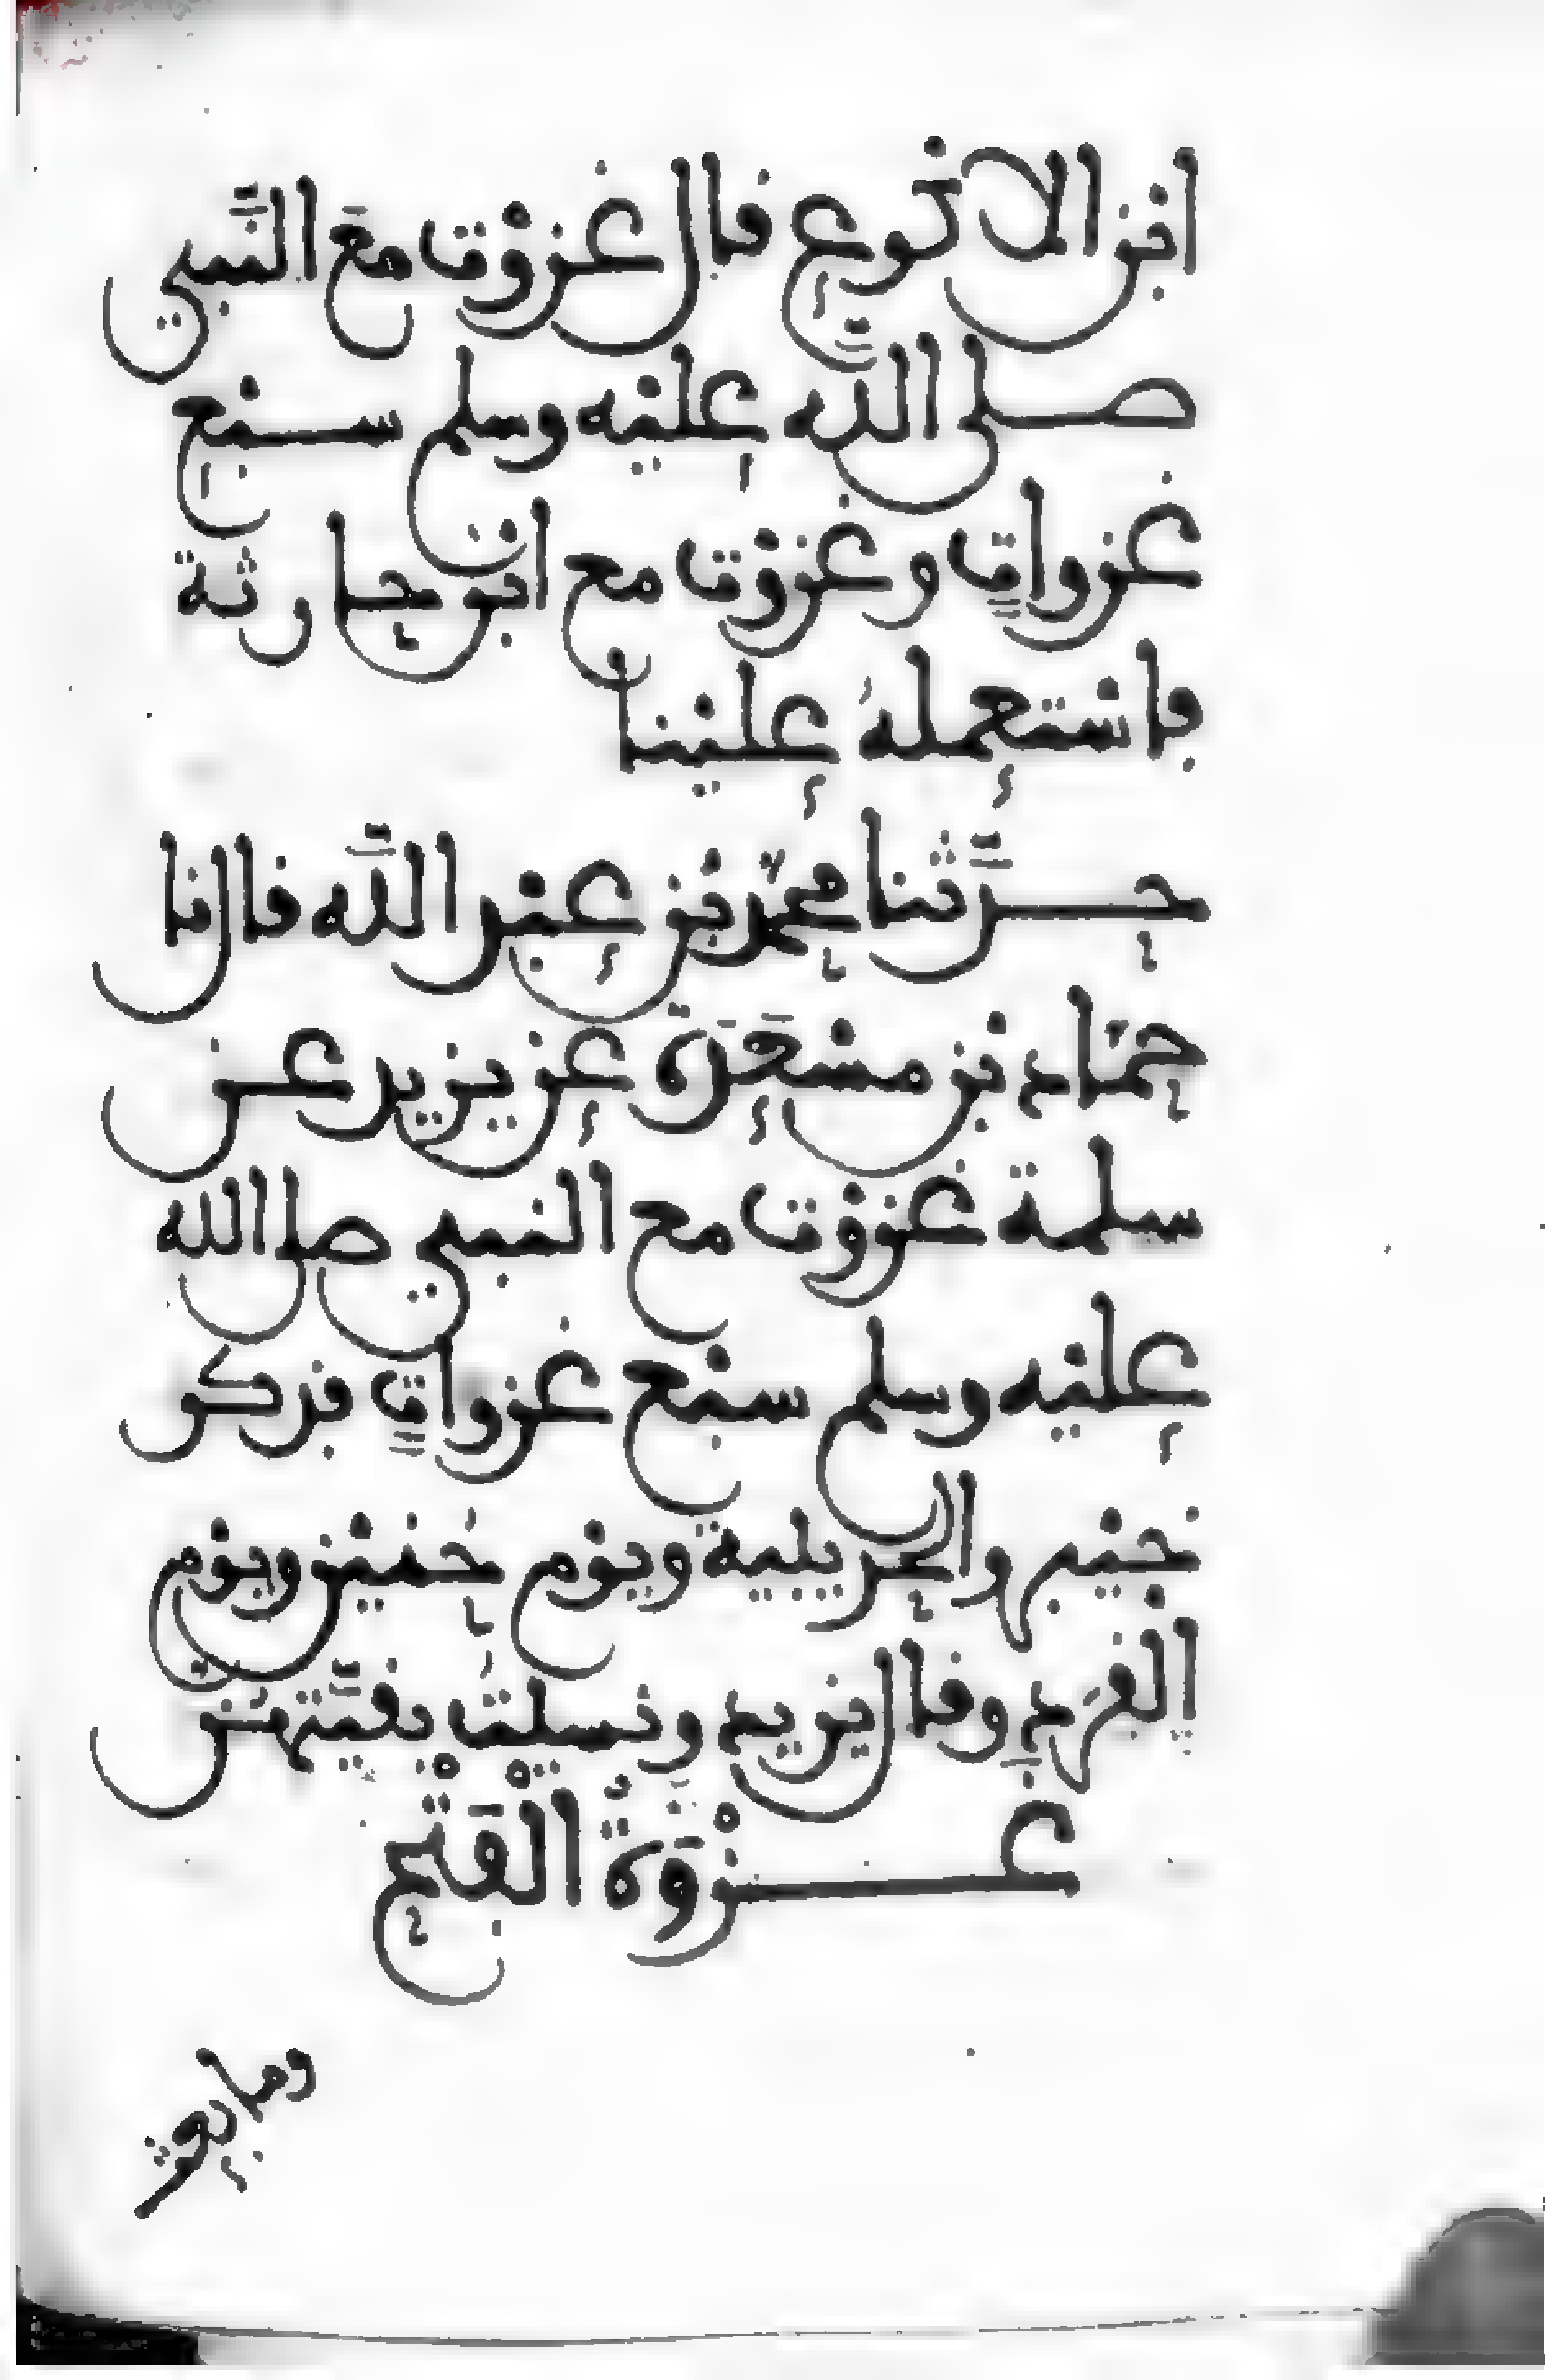 ابْن الاكوع قال غزوْت معَ النَّبي
صلى اللَّه عليْه وسلم سبْع
غزواتٍ وغزوْت مع ابن حارثة
فاسْتعمله علينا
حدَّثنا محمّد بْن عبْد اللَّه قال نا
حمّاد بْن مسْعَدَة عن يزيد عن
سلمة غزوْت مع النبي صلى الله
عليْه وسلم سبْع غزواتٍ فذكر
خيْبر والحديبية ويوْم حُنيْن ويوْم
القرَدِ وقال يزيد ونسيت بقيَّتهن
غزْوَةُ الْفَتْح
وما بعث